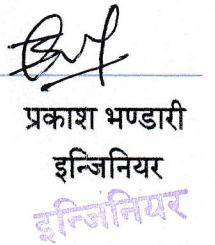 प्रकाश भण्डारी
इन्जिनियर
इन्जिनियर